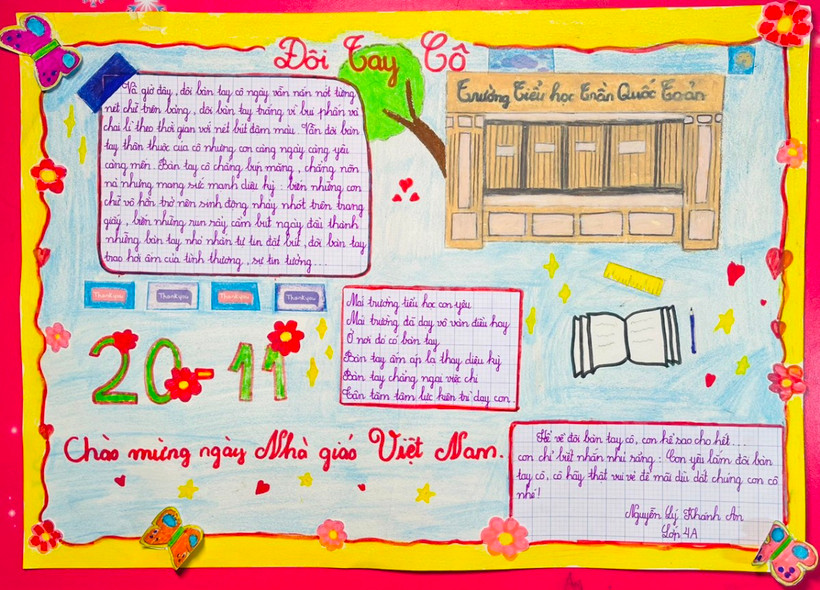 Đôi Tay Cô
Trường Tiểu học Trần Quốc Toản
Và giờ đây, đôi bàn tay cô ngày vẫn nắn nót từng
nét chữ trên bảng, đôi bàn tay trắng vì bụi phấn và
chai lì theo thời gian với nét bút đậm màu. Vẫn đôi bàn
tay thân thuộc của cô nhưng con càng ngày càng yêu
càng mến. Bàn tay cô chẳng bụp măng, chẳng nõn
nà nhưng mang sức mạnh diệu kỳ: biến những con
chữ vô hồn trở nên sinh động nhảy nhót trên trang
giấy, biến những run rẩy cầm bút ngày đầu thành
những bàn tay nhỏ nhắn tự tin đặt bút, đôi bàn tay
trao hơi ấm của tình thương, sự tin tưởng...
Thank you
Thank you
Thank you
Thank you
Mái trường tiểu học con yêu
Mái trường đã dạy vô vàn điều hay
Ở nơi đó có bàn tay
Bàn tay ấm áp lạ thay diệu kỳ
Bàn tay chẳng ngại việc chi
Tần tảo tâm lực kiên trì dạy con
20-11
Chào mừng ngày Nhà giáo Việt Nam.
Hè về đôi bàn tay cô, con kể sao cho hết...
con chỉ biết nhắn nhủ rằng: Con yêu lắm đôi bàn
tay cô, cô hãy thật vui vẻ để mãi dìu dắt chúng con cô
nhé!
Nguyễn Lý Khánh An
Lớp 4A